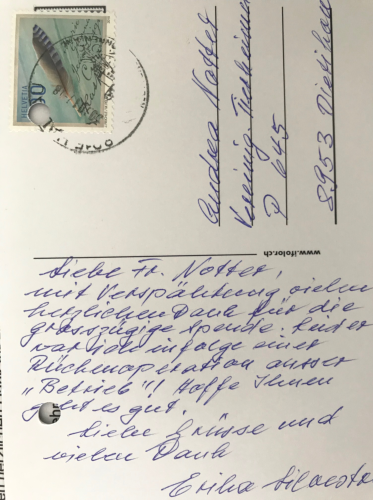 HELVETIA
Andrea Notter
P 645
8953 Dietikon
www.ifolor.ch
Liebe Fr. Notter,
mit Verspähtung vielen
herzlichen Dank für die
grosszügige Spende. Leider
war ich infolge einer
Rückenoperation ausser
„Betrieb"! Hoffe Ihnen
geht es gut.
Liebe Grüsse und
vielen Dank
Erika